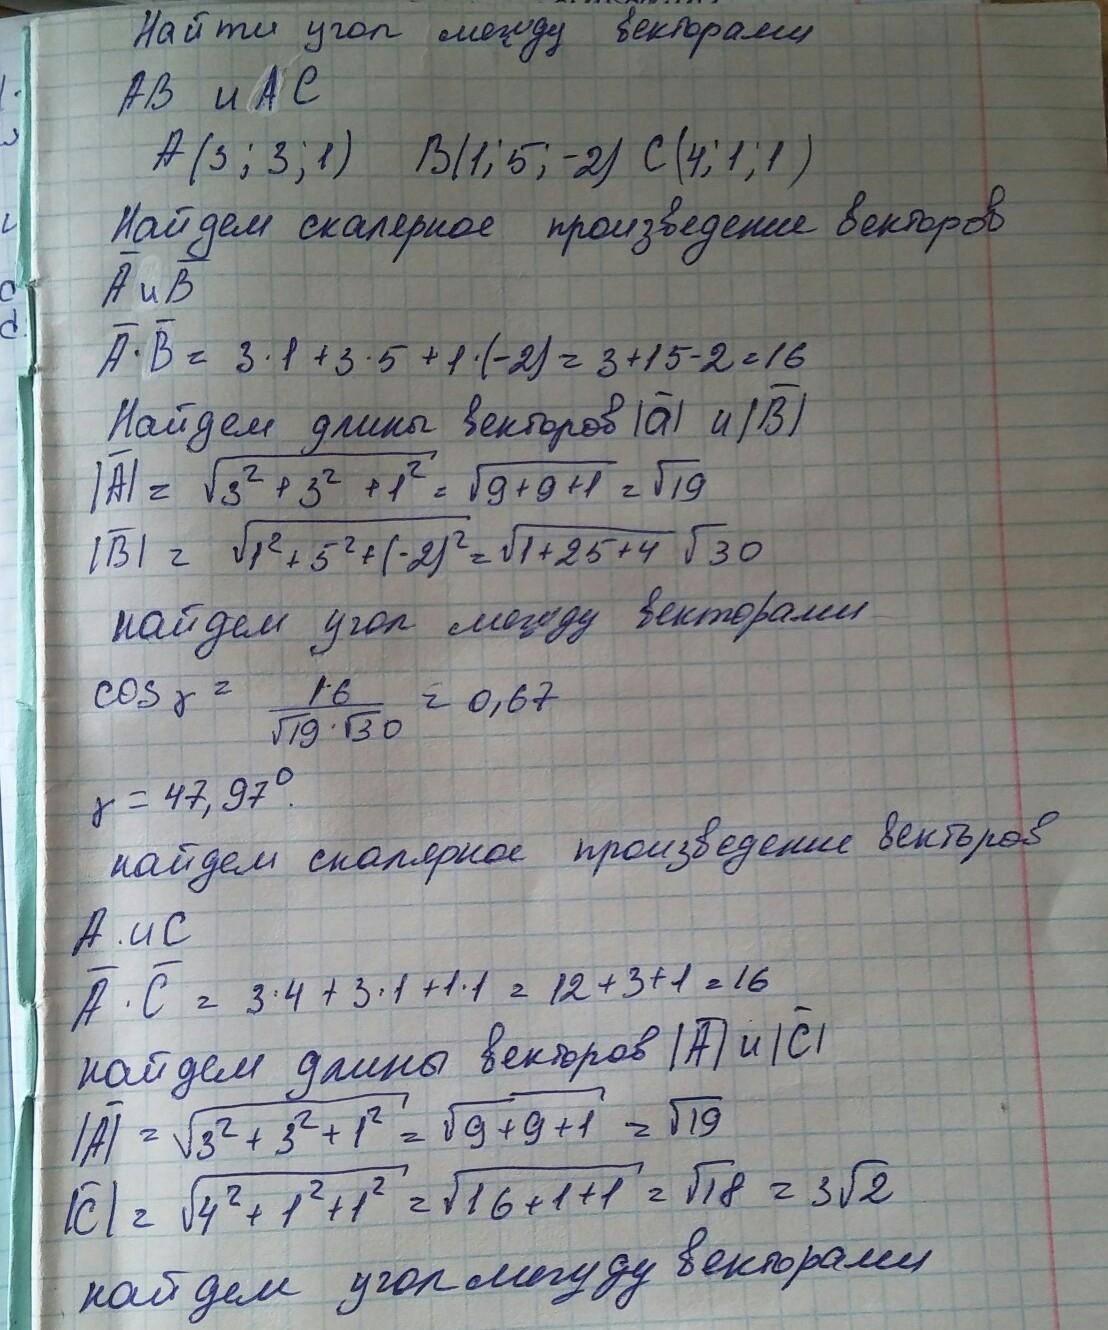 Найти угол между векторами
АВ и АС
А(3; 3; 1) В(1; 5; -2) С(4; 1; 1)
Найдем скалерное произведение векторов
A̅ и B̅
A̅ · B̅ = 3·1 + 3·5 + 1·(-2) = 3+15-2=16
Найдем длины векторов |a̅| и |B̅|
|A̅| = √(3² + 3² + 1²) = √(9+9+1) = √19
|B̅| = √(1² + 5² + (-2)²) = √(1+25+4) √30
найдем угол между векторами
cos γ = 16/(√19·√30) = 0,67
γ = 47,97°.
найдем скалярное произведение векторов
А и С
A̅ · C̅ = 3·4 + 3·1 + 1·1 = 12+3+1 = 16
найдем длины векторов |A̅| и |C̅|
|A̅| = √(3² + 3² + 1²) = √(9+9+1) = √19
|C̅| = √(4² + 1² + 1²) = √(16+1+1) = √18 = 3√2
найдем угол между векторами